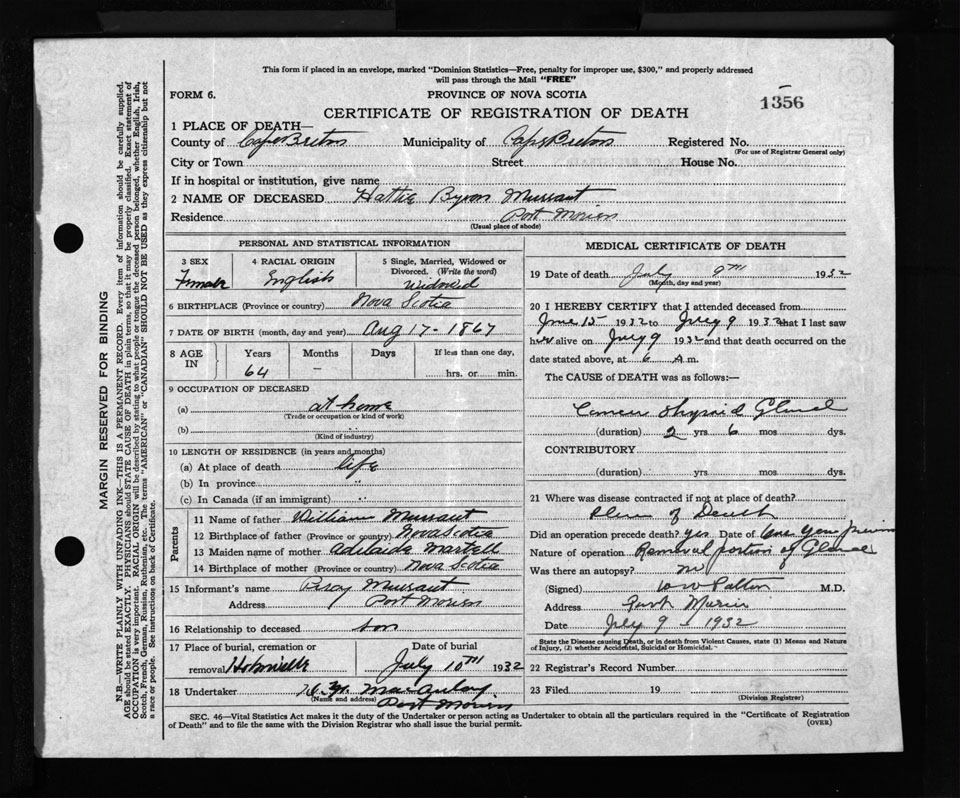 This form if placed in an envelope, marked "Dominion Statistics—Free, penalty for improper use, $300," and properly addressed
will pass through the Mail "FREE"
FORM 6.
PROVINCE OF NOVA SCOTIA
1356
CERTIFICATE OF REGISTRATION OF DEATH
1 PLACE OF DEATH—
County of Cape Breton Municipality of Cape Breton Registered No.
(For use of Registrar General only)
City or Town Street House No.
If in hospital or institution, give name
2 NAME OF DECEASED Hattie Byron Murrant
Residence Port Morien
(Usual place of abode)
PERSONAL AND STATISTICAL INFORMATION
3 SEX 4 RACIAL ORIGIN 5 Single, Married, Widowed or
Divorced. (Write the word)
Female English Widowed
6 BIRTHPLACE (Province or country) Nova Scotia
7 DATE OF BIRTH (month, day and year) Aug 17 - 1867
8 AGE IN Years Months Days If less than one day,
64 — hrs. or min.
9 OCCUPATION OF DECEASED
(a) at home
(Trade or occupation or kind of work)
(b)
(Kind of industry)
10 LENGTH OF RESIDENCE (in years and months)
(a) At place of death life
(b) In province "
(c) In Canada (if an immigrant) "
Parents
11 Name of father William Murrant
12 Birthplace of father (Province or country) Nova Scotia
13 Maiden name of mother Adelaide Martell
14 Birthplace of mother (Province or country) Nova Scotia
15 Informant's name Percy Murrant
Address Port Morien
16 Relationship to deceased son
17 Place of burial, cremation or Date of burial
removal July 10TH 1932
18 Undertaker MacAulay
(Name and address) Port Morien
MEDICAL CERTIFICATE OF DEATH
19 Date of death July 9TH 1932
(Month, day and year)
20 I HEREBY CERTIFY that I attended deceased from
June 15 1932 to July 9 1932 that I last saw
her alive on July 9 1932 and that death occurred on the
date stated above, at 6 A.m.
The CAUSE of DEATH was as follows:—
Cancer Thyroid Gland
(duration) 2 yrs 6 mos dys.
CONTRIBUTORY
(duration) yrs. mos. dys.
21 Where was disease contracted if not at place of death?
Place of Death
Did an operation precede death? yes Date of One Year
Nature of operation Removal portion of Gland
Was there an autopsy? no
(Signed) Patton M.D.
Address Port Morien
Date July 9 - 1932
State the Disease causing Death, or in death from Violent Causes, state (1) Means and Nature
of Injury, (2) whether Accidental, Suicidal or Homicidal.
22 Registrar's Record Number
23 Filed 19
(Division Registrar)
SEC. 46—Vital Statistics Act makes it the duty of the Undertaker or person acting as Undertaker to obtain all the particulars required in the "Certificate of Registration
of Death" and to file the same with the Division Registrar who shall issue the burial permit. (OVER)
MARGIN RESERVED FOR BINDING
N.B.—WRITE PLAINLY WITH UNFADING INK—THIS IS A PERMANENT RECORD. Every item of information should be carefully supplied.
AGE should be stated EXACTLY. PHYSICIANS should STATE CAUSE OF DEATH in plain terms, so that it may be properly classified. Exact statement of
OCCUPATION is very important. RACIAL ORIGIN will be described by stating to what people or tongue the deceased person belonged, whether English, Irish,
Scotch, French, German, Russian, Ruthenian, etc. The terms "AMERICAN" or "CANADIAN" SHOULD NOT BE USED as they express citizenship but not
a race or people. See instructions on back of Certificate.